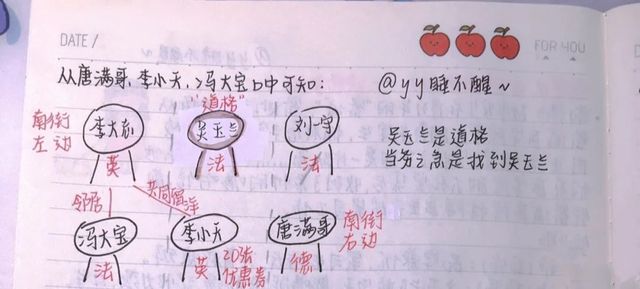 DATE /
FOR YOU
从唐满哥、李小天、冯大宝口中可知：
@yy睡不醒~
"道格"
南街
左边
李大彪
吴玉兰
刘一守
英
法
法
吴玉兰是道格
当务之急是找到吴玉兰
邻居
共同信仰
冯大宝
李小天
唐满哥
南街
右边
法
英
20张
优惠券
德